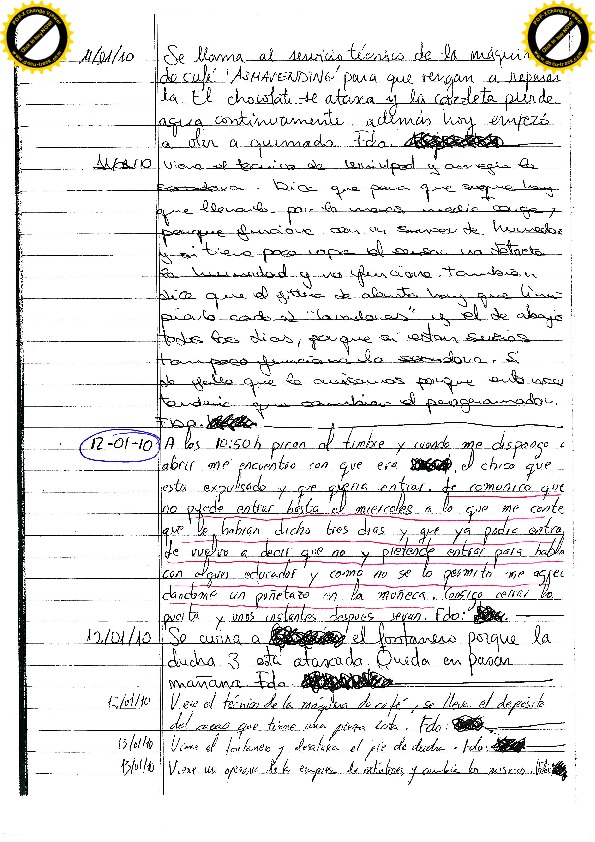 11/01/10 Se llama al servicio técnico de la máquin
de café 'ASHAVENDING' para que vengan a reparar
la. El chocolate se atasca y la cazoleta pierde
agua continuamente. además hoy empezó
a oler a quemado. Fdo.
11/01/10 Viene el técnico de y arregla la
secadora. Dice que para que haya
que llenarla por lo menos media carga,
porque funciona con un sensor de humedad
y si tiene poca ropa el sensor no detecta
la humedad y no funciona. También
dice que el filtro de hay que lim
piarlo cada 2 "lavadoras" y el de abajo
todos los días, porque si están sucios
tampoco funciona la secadora. Si
se falla que le avisemos porque entonces
tendría que cambiar el programador.
Fdo.
12-01-10 A las 10:50h pican al timbre y cuando me dispongo a
abrir me encuentro con que era el chico que
está expulsado y que quería entrar. Le comunico que
no puede entrar hasta el miercoles a lo que me conte
que le habían dicho tres días y que ya podía entrar,
le vuelvo a decir que no y pretende entrar para habla
con algún educador y como no se lo permito me agrei
dandome un puñetazo en la muñeca. Consigo cerrar la
puerta y unos instantes despues Fdo:
12/01/10 Se avisa a el fontanero porque la
ducha 3 está atascada. Queda en pasar
mañana Fdo.
12/01/10 Viene el técnico de la máquina de café, se lleva el depósito
del cacao que tiene una pieza rota. Fdo:
13/01/10 Viene el fontanero y desatasca el pie de ducha. Fdo:
13/01/10 Viene un operario de la empresa de extintores y cambia los mismos. Fdo: